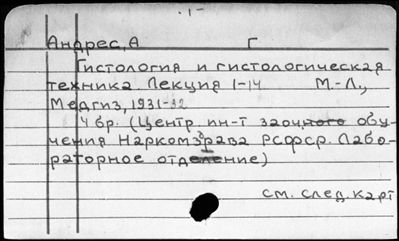 -1-
Андрес, А Г
Гистология и гистологическая
техника. Лекция 1-14 М.-Л.,
Медгиз, 1931-32
4 бр. (Центр. ин-т заочного обу-
чения Наркомздрава РСФСР. Лабо-
раторное отделение)
см. след. карт